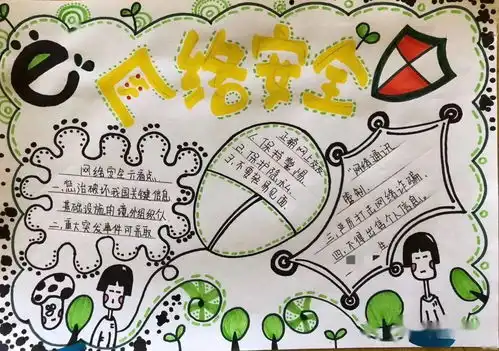 e
网络安全
网络安全亮看点
一.惩治破坏我国关键信息
基础设施的境外组织仪
二.重大突发事件可采取
正确网上交友
1.保持警惕
2.保护隐私
3.不要轻易见面
"网络通讯
管制.
三.严厉打击网络诈骗.
四.不得出售个人信息.